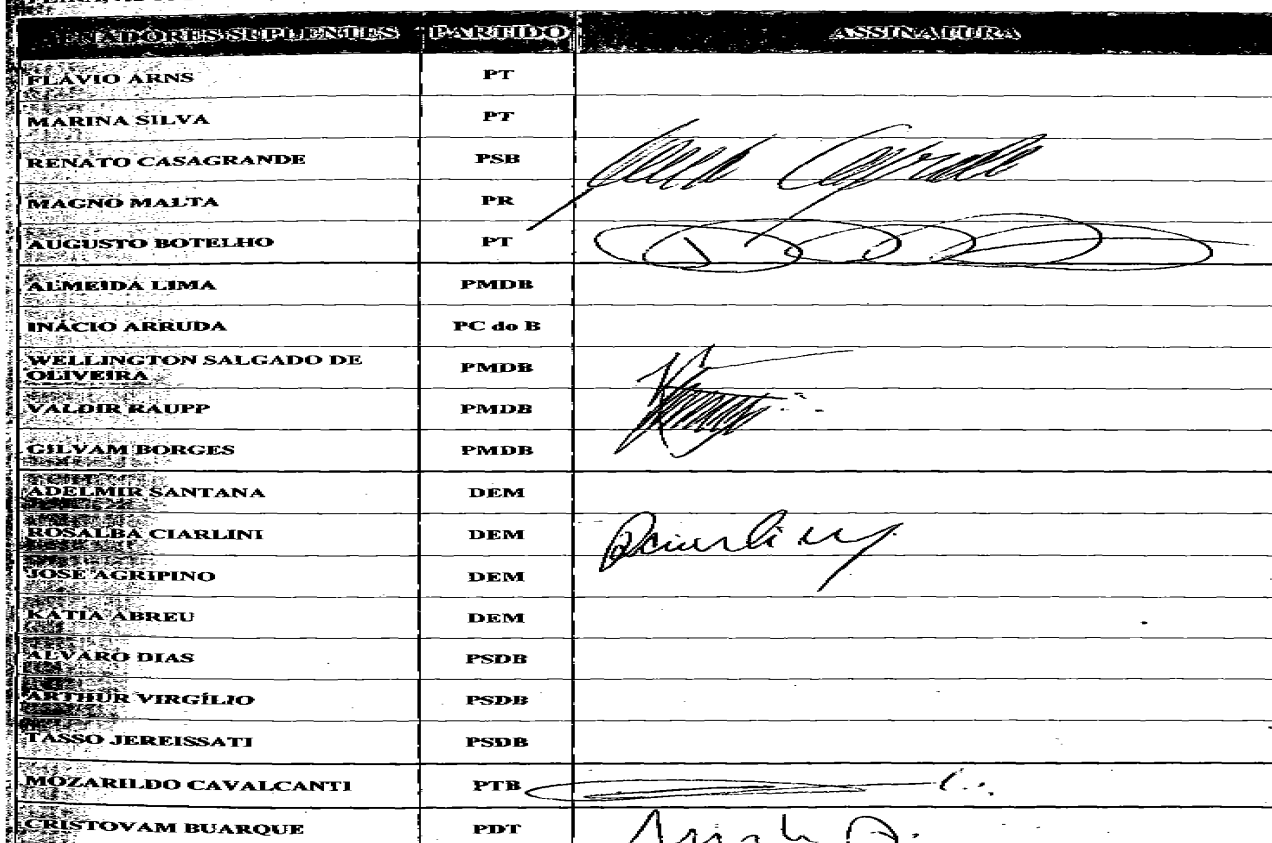 SENADORES SUPLENTES PARTIDO ASSINATURA
FLÁVIO ARNS PT
MARINA SILVA PT
RENATO CASAGRANDE PSB
MAGNO MALTA PR
AUGUSTO BOTELHO PT
ALMEIDA LIMA PMDB
INÁCIO ARRUDA PC do B
WELLINGTON SALGADO DE
OLIVEIRA PMDB
VALDIR RAUPP PMDB
GILVAM BORGES PMDB
ADELMIR SANTANA DEM
ROSALBA CIARLINI DEM
JOSÉ AGRIPINO DEM
KÁTIA ABREU DEM
ALVARO DIAS PSDB
ARTHUR VIRGÍLIO PSDB
TASSO JEREISSATI PSDB
MOZARILDO CAVALCANTI PTB
CRISTOVAM BUARQUE PDT